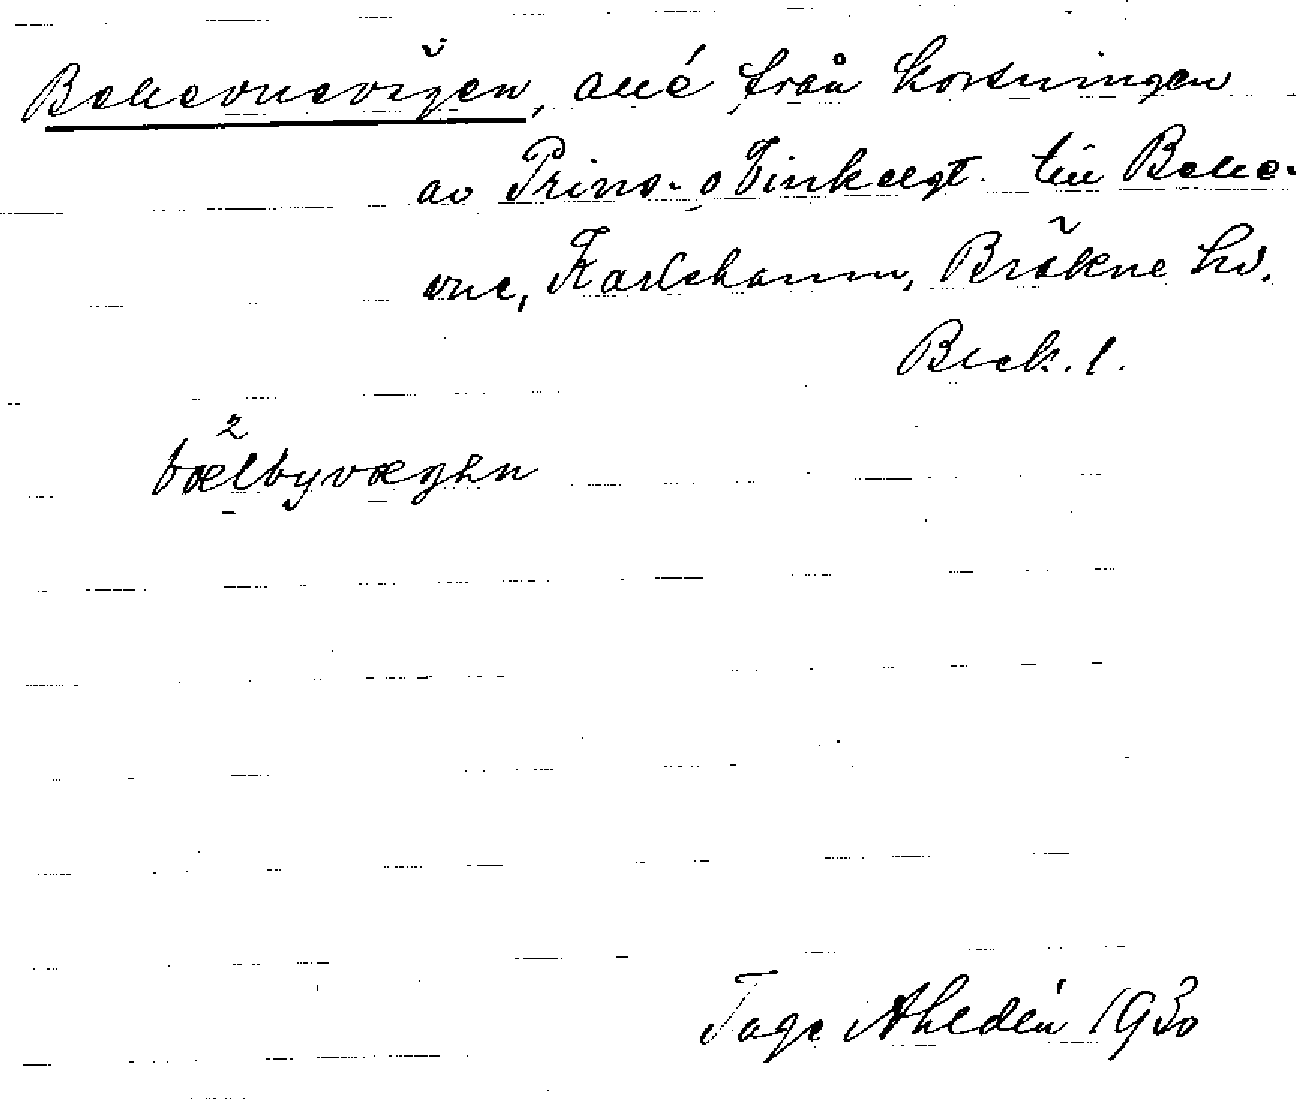 Bellevuevägen, allé från korsningen
av Prins- o Vinkelgt. till Belle-
vue, Karlshamn, Bräkne hd.
Blek. l.
2
bælbyvæghn
Tage Ahldén 1930